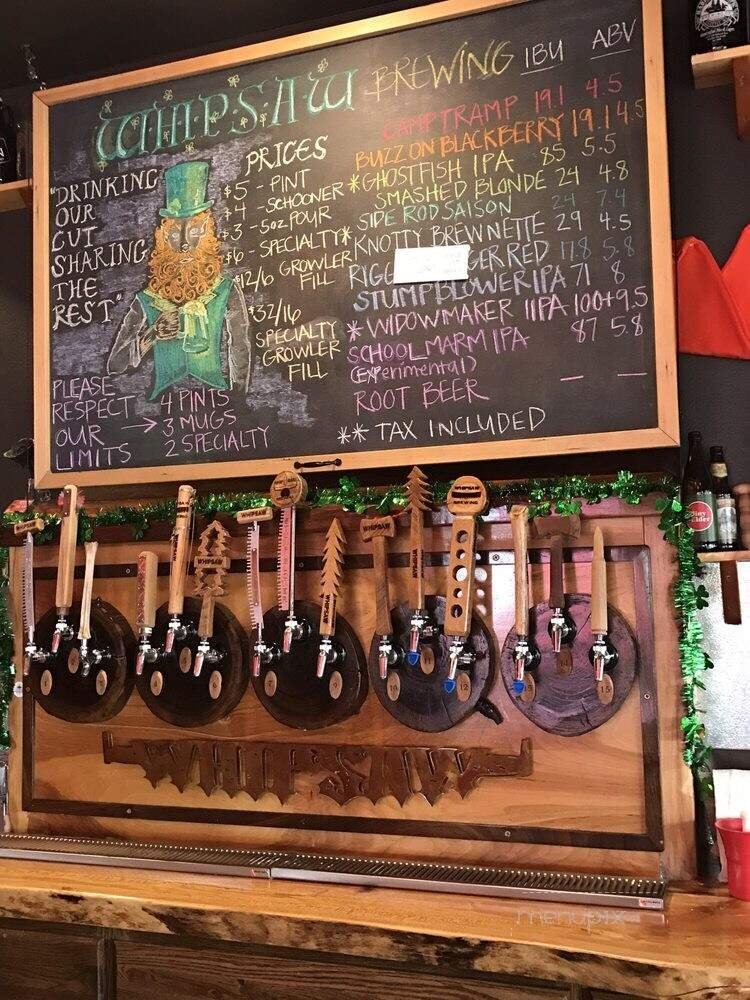 WHIPSAW BREWING IBU ABV
"DRINKING
OUR
CUT
SHARING
THE
REST"
PLEASE
RESPECT
OUR
LIMITS
4 PINTS
3 MUGS
2 SPECIALTY
PRICES
$5 - PINT
$4 - SCHOONER
$3 - 5oz POUR
$6 - SPECIALTY*
$12/6 GROWLER
FILL
$32/16
SPECIALTY
GROWLER
FILL
CAMP TRAMP 19.1 4.5
BUZZ ON BLACKBERRY 19.1 4.5
*GHOSTFISH IPA 85 5.5
SMASHED BLONDE 24 4.8
SIDE ROD SAISON 24 7.4
KNOTTY BREWNETTE 29 4.5
RIGG GER RED 17.8 5.8
STUMPBLOWER IPA 71 8
* WIDOWMAKER IIPA 100+ 9.5
SCHOOL MARM IPA 87 5.8
(Experimental)
ROOT BEER — —
** TAX INCLUDED
WHIPSAW
WHIPSAW
WHIPSAW
WHIPSAW
WHIPSAW
WHIPSAW
WHIPSAW
WHIPSAW
BREWING
10
11
12
13
14
15
WHIPSAW
menupix